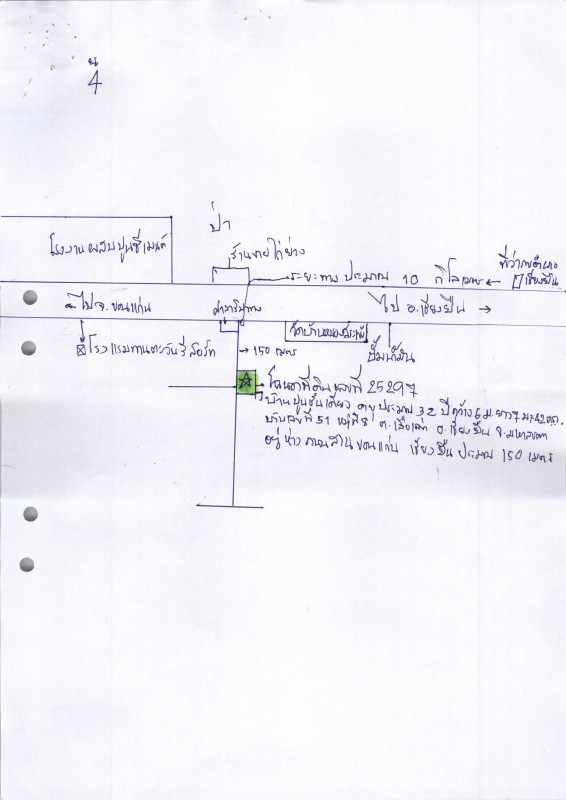 น
4
ป่า
โรงงานผสมปูนซีเมนต์
ร้านขายไก่ย่าง
ที่ว่าการอำเภอ
เชียงยืน
ระยะทาง ประมาณ 10 กิโลเมตร ←
← ไป จ.ขอนแก่น
ศาลาริมทาง
ไป อ.เชียงยืน →
โรงแรมทานตะวันรีสอร์ท
→ 150 เมตร
ปั๊มน้ำมัน
โฉนดที่ดินเลขที่ 25297
บ้านปูนชั้นเดียว อายุ ประมาณ 32 ปี กว้าง 6 ม. ยาว 7 ม.
บ้านเลขที่ 51 หมู่ที่ 8 อ.เชียงยืน จ.มหาสารคาม
อยู่ห่าง ถนนสาย ขอนแก่น เชียงยืน ประมาณ 150 เมตร